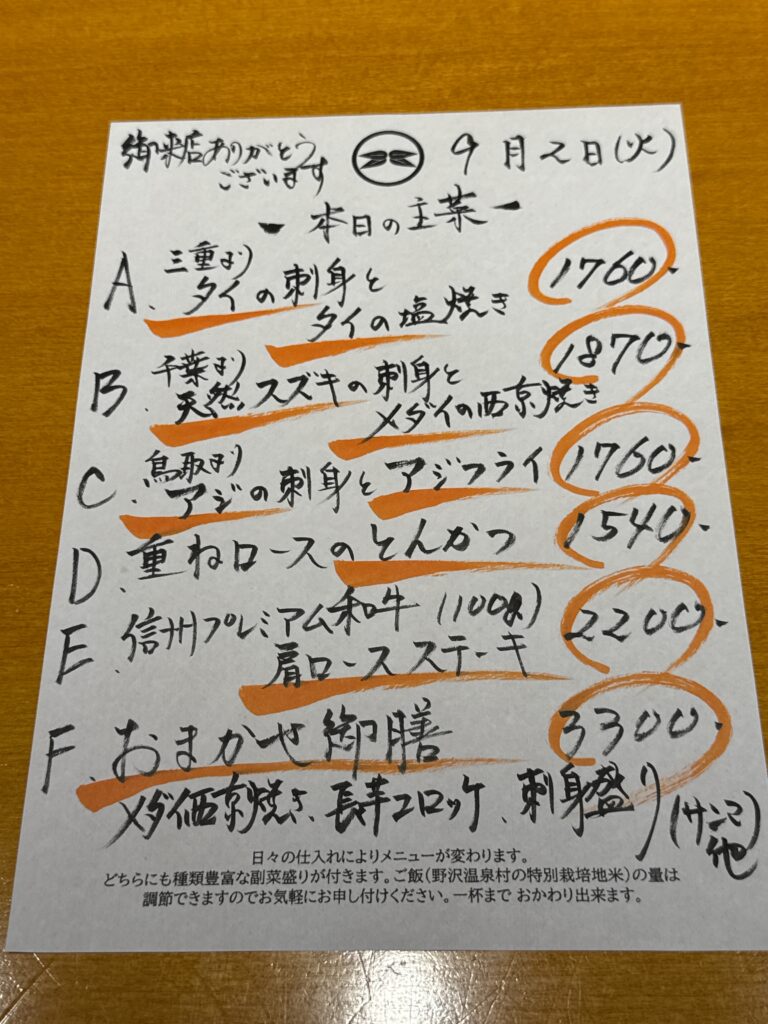 御来店ありがとう
ございます
9月2日(火)
ー 本日の主菜 ー
A、三重より
タイの刺身と
タイの塩焼き
1760-
B、千葉より
天然スズキの刺身と
メダイの西京焼き
1870-
C、鳥取より
アジの刺身とアジフライ
1760-
D、重ねロースのとんかつ
1540-
E、信州プレミアム和牛(100g)
肩ロースステーキ
2200-
F、おまかせ御膳
3300-
メダイ西京焼き、長芋コロッケ、刺身盛り(サンマ他)
日々の仕入れによりメニューが変わります。
どちらにも種類豊富な副菜盛りが付きます。ご飯(野沢温泉村の特別栽培地米)の量は
調節できますのでお気軽にお申し付けください。一杯まで おかわり出来ます。